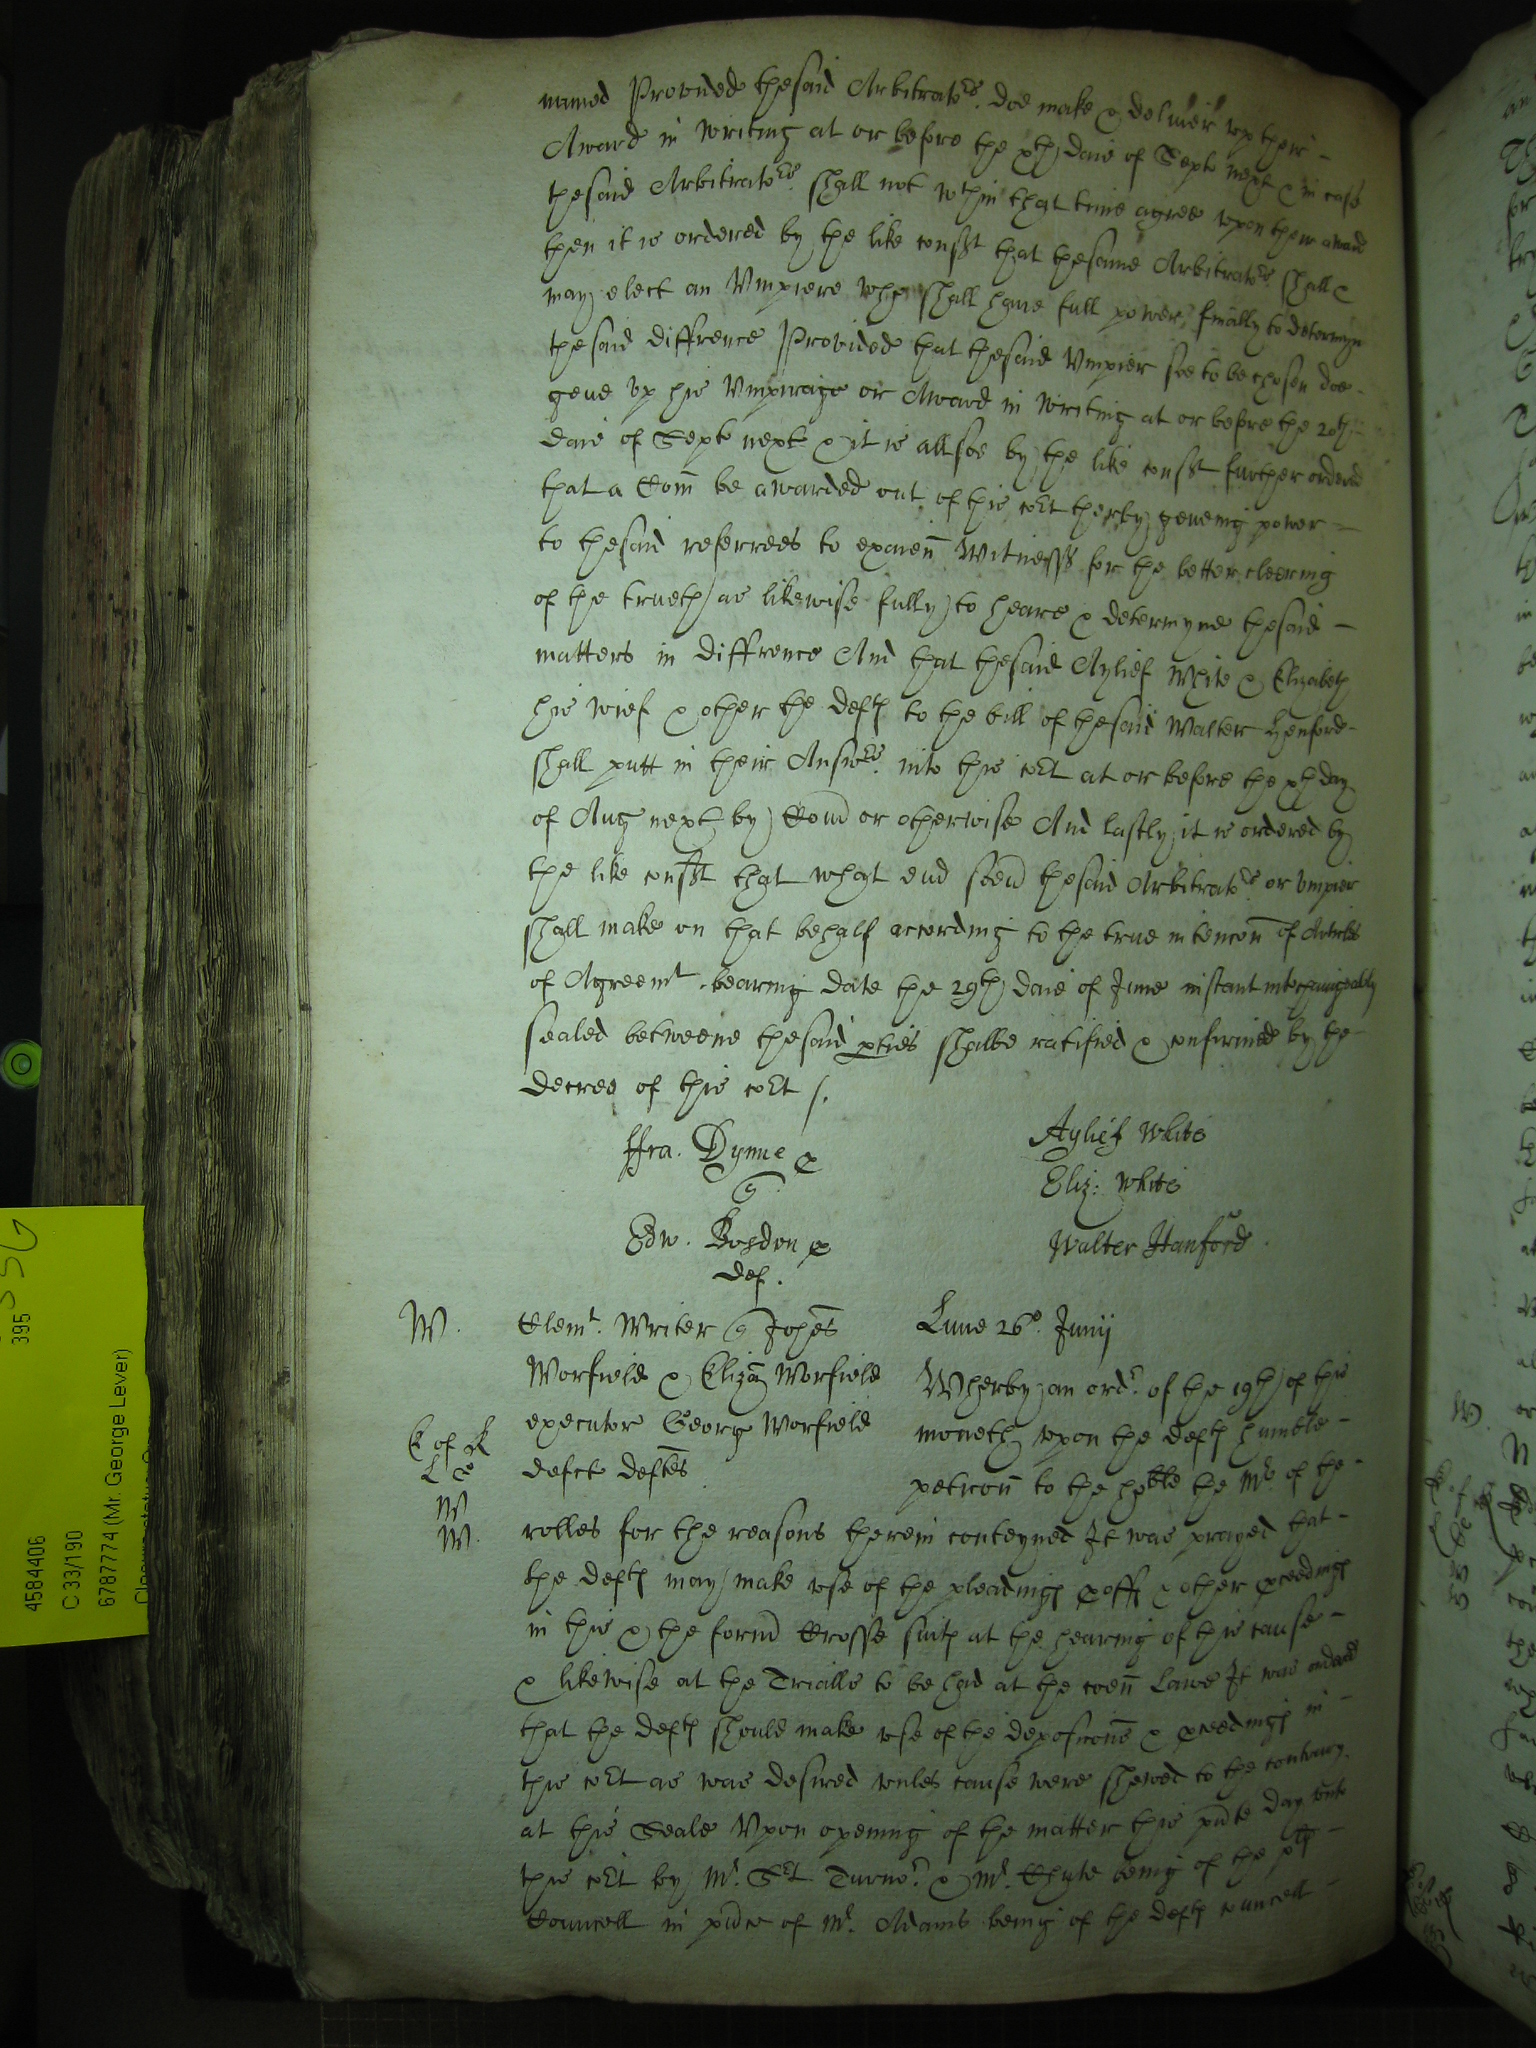 named Provided thesaid Arbitrators doe make & deliver vp their
Award in writing at or before the xth daie of Sept next & in case
thesaid Arbitrators shall not wthin that time agree vpon their award
then it is ordered by the like consst that thesame Arbitrators shall &
may elect an Vmpiere who shall haue full power finally to determyn
thesaid diffrence Provided that thesaid Vmpier soe to be chosen doe
geue vp his Vmpirage or Award in writing at or before the 20th
daie of Sept next & it is allsoe by the like consst further ordered
that a Com be awarded out of this cort therby geueing power
to thesaid referrees to exaien Witnesses for the better cleering
of the trueth as likewise fully to heare & determyne thesaid
matters in diffrence And that thesaid Aylief White & Elizabeth
his wief & other the defts to the bill of thesaid Walter Henford
shall putt in their Answers into this cort at or before the xth day
of Aug next by Com or otherwise And lastly it is ordered by
the like consst that what end soeu thesaid Arbitrators or vmpier
shall make on that behalf according to the true intencon of Articles
of Agreemt bearing date the 29th daie of June instant interchaungeably
sealed betweene thesaid pties shalbe ratified & confirmed by the
decree of this cort /.
ffra. Dynne &
q
Edw. Bosdon &
def.
Aylief White
Eliz: White
Walter Hanford
W.
Clemt. Writer q Johes
Worfield & Eliza Worfield
executor George Worfield
defct deftes
Lune 26o. Junij
Wherby an ordr. of the 19th of this
moneth vpon the defts humble
peticon to the hoble the Mr. of the
W
W.
rolles for the reasons therein conteyned It was prayed that
the defts may make vse of the pleadings proffs & other proceedings
in this & the form Crosse suits at the hearing of this cause
& likewise at the Trialls to be had at the coen Lawe It was ordered
that the defts should make vse of the deposicons & proceedings in
this cort as was desired vnles cause were shewed to the contrary
at this Seale Vpon opening of the matter this pnte day vnto
this cort by Mr. Srt Turnor. & Mr. Chute being of the plts
Councell in pnce of Mr. Adams being of the defts councell
4584406
C 33/190
6787774 (Mr. George Lever)
395